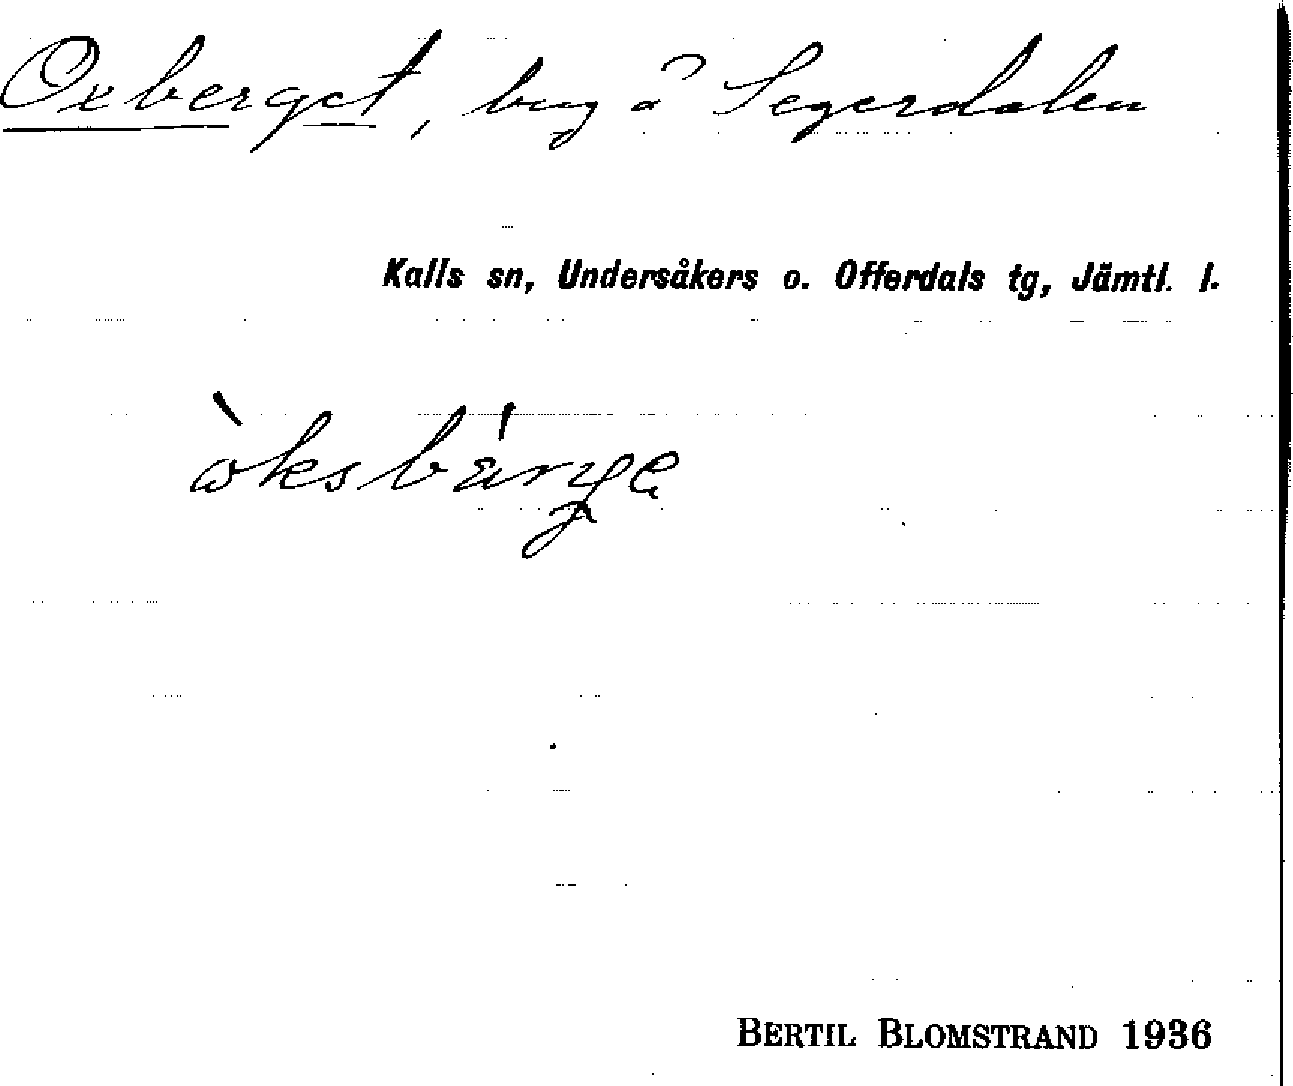 Oxberget, berg å Segerdalen
Kalls sn, Undersåkers o. Offerdals tg, Jämtl. l.
BERTIL BLOMSTRAND 1936